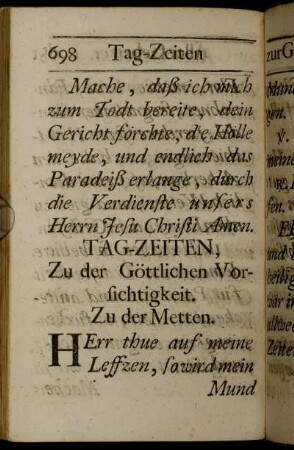 698 Tag-Zeiten
Mache, daß ich mich
zum Todt bereite, dein
Gericht förchte, die Höll
meyde, und endlich das
Paradeiß erlange, durch
die Verdienste unsers
Herrn Jesu Christi Amen.
TAG-ZEITEN,
Zu der Göttlichen Vor-
sichtigkeit.
Zu der Metten.
HErr thue auf meine
Leffzen, so wird mein
Mund
zur